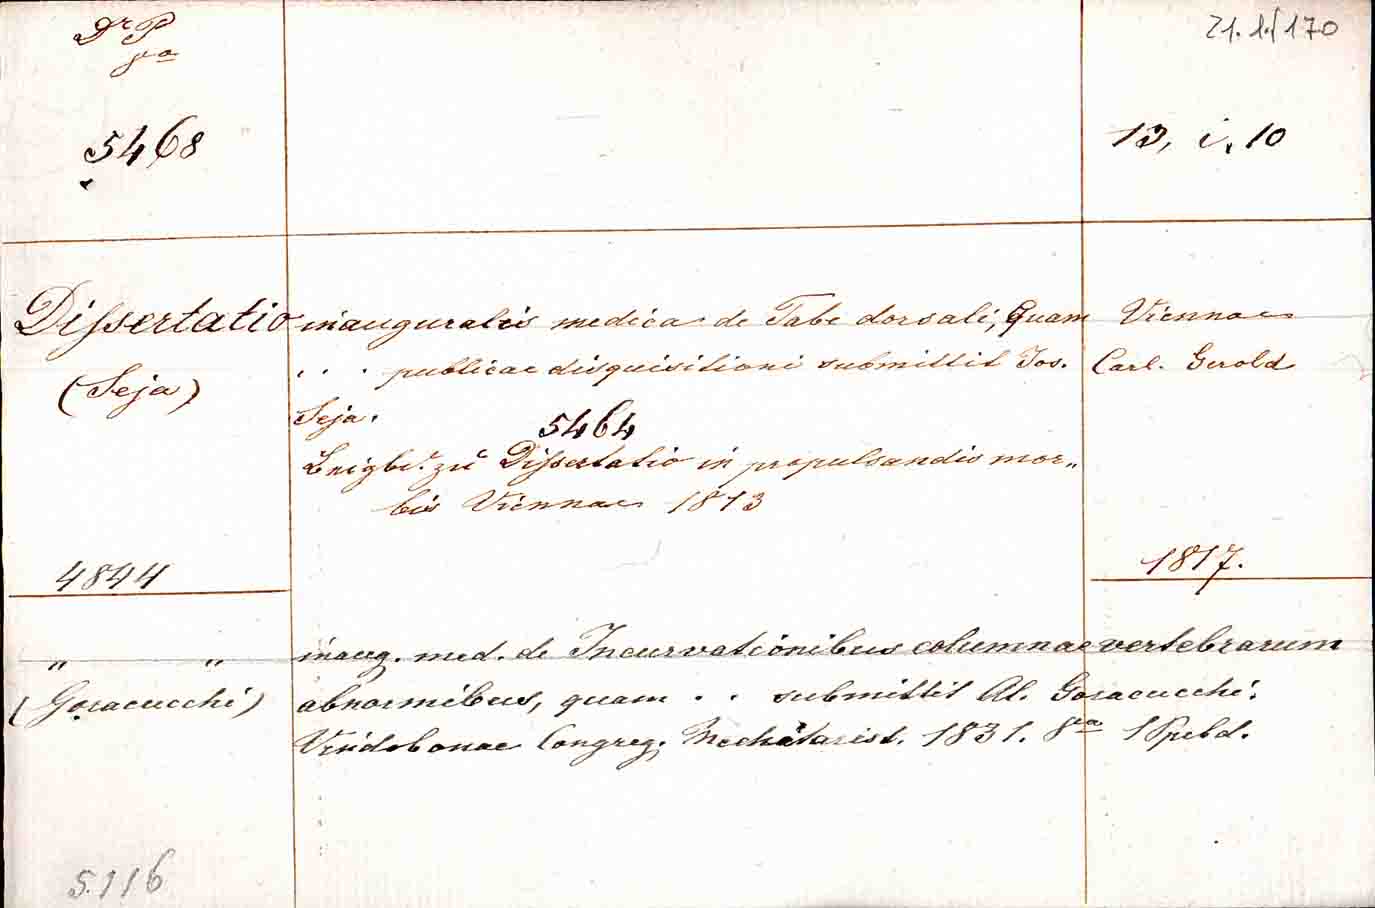 Dr P
8vo
21.1./170
5468
13, i, 10
Dissertatio inauguralis medica de Tabe dorsali, Quam Viennae
(Seja) . . . publicae disquisitioni submittit Jos. Carl. Gerold
Seja.
5464
Beigb. zu Dissertatio in propulsandis mor„
bis Viennae 1813
4844
1817.
" " inaug. med. de Incurvationibus columnae vertebrarum
(Goracucchi) abnormibus, quam . . submittit Al. Goracucchi.
Vindobonae Congreg. Mechitarist. 1831. 8va 1 Ppbd.
5.116